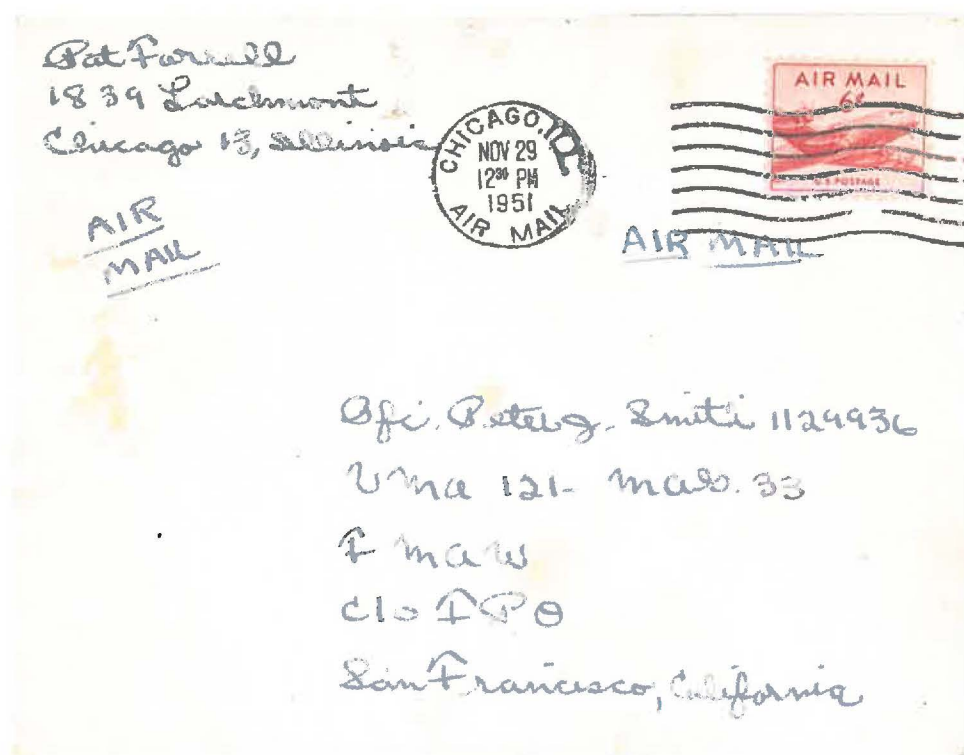 Pat Farrell
1839 Larchmont
Chicago 13, Illinois
CHICAGO, ILL.
NOV 29
12 30 PM
1951
AIR MAIL
AIR MAIL
6¢
U.S. POSTAGE
AIR
MAIL
AIR MAIL
Pfc. Peter J. Smith 1129936
VMA 121- MAG. 33
I MAW
c/o FPO
San Francisco, California